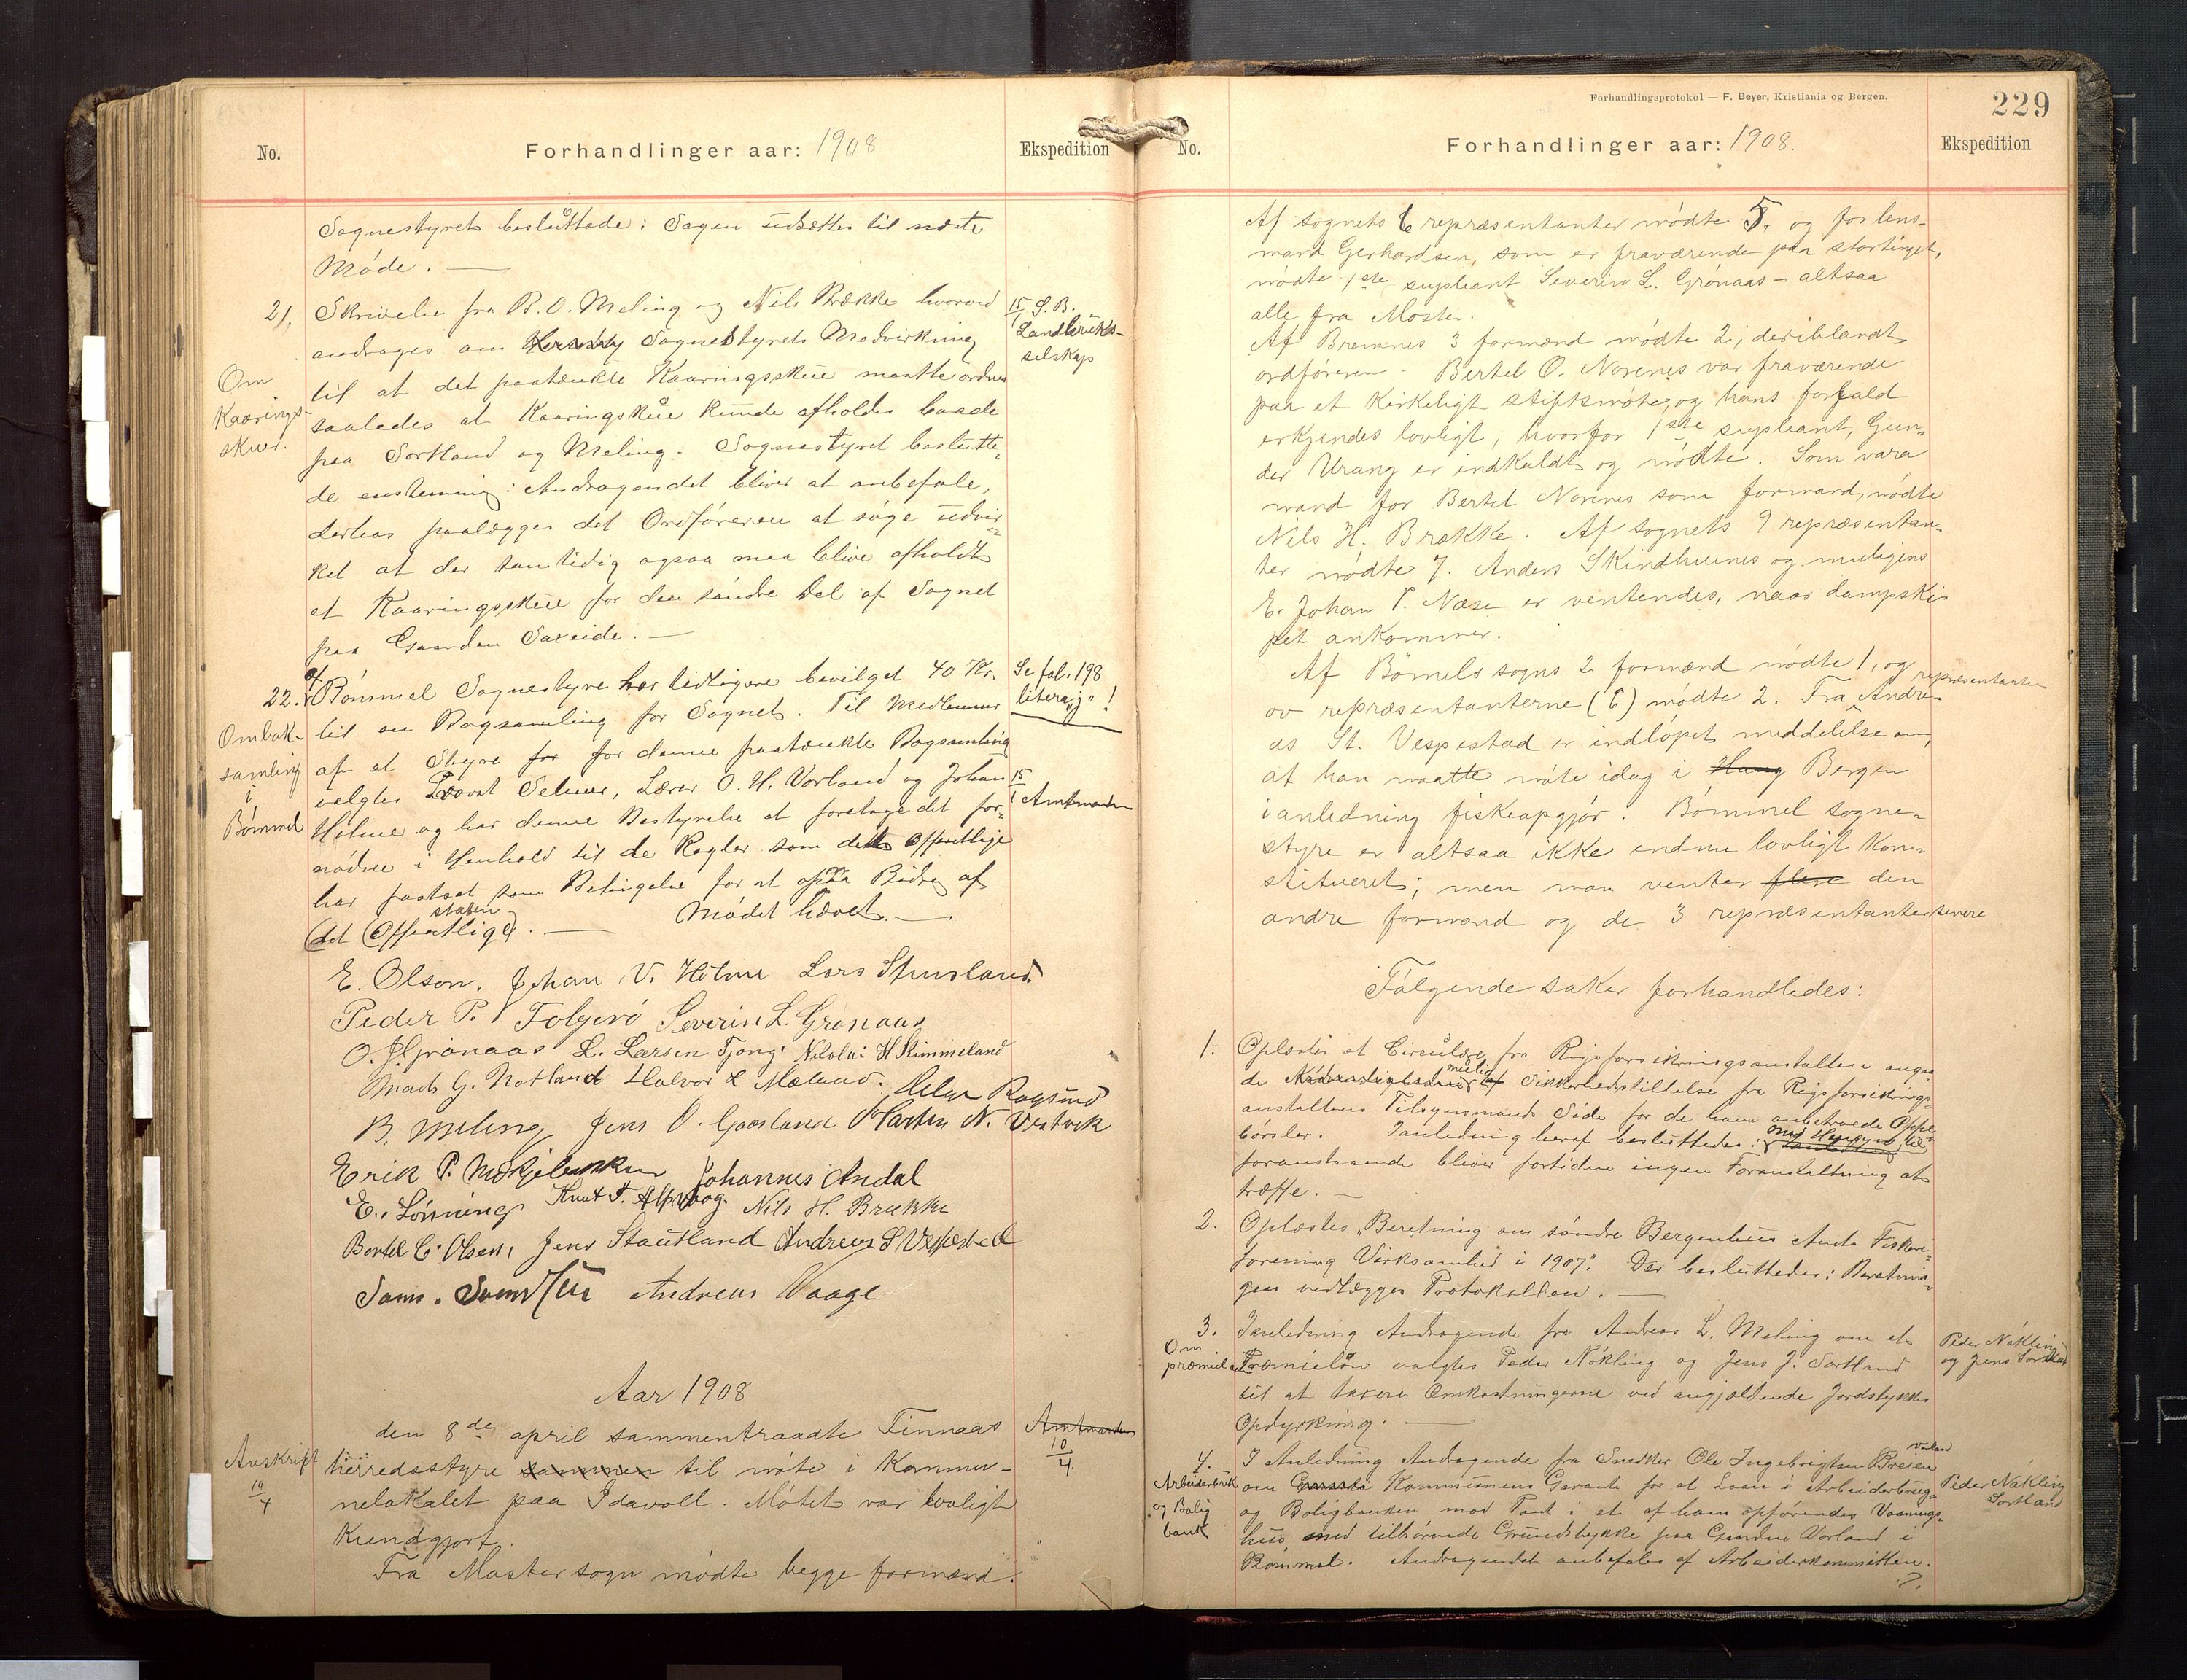 No.
Forhandlinger aar: 1908
Ekspedition
Sognestyret besluttede: Sagen udsættes til næste
Møde. —
21. Skrivelse fra B. O. Meling og Nils Brække hvorved
andrages om Sognestyrets Medvirkning
til at det paatænkte Kaaringsskue maatte ordnes
saaledes at Kaaringskue kunde afholdes baade
paa Sortland og Meling. Sognestyret beslutte-
de enstemmig: Andragendet bliver at anbefale,
derhos paalægges det Ordføreren at søge udvir-
ket at der samtidig ogsaa maa blive afholdt
et Kaaringsskue for den søndre Del af Sognet
paa Gaarden Saxeide. —
Om
Kaarings-
skuer.
15/1 S. B.
Landbruks-
selskap
22. Af Bømmel Sognestyre har tidligere bevilget 40 Kr.
til en Bogsamling for Sognet. Til Medlemmer
af et Styre for for denne paatænkte Bogsamling
valgtes Provst Selmer, Lærer O. H. Vorland og Johan
Holme og har denne Bestyrelse at foretage det for-
nødne i Henhold til de Regler som dette Offentlige
har fastsat som Betingelse for at opnaa Bidrag af
staten
(det Offentlige). — Mødet hævet. —
Om bok-
samling
i
Bømmel
Se fol. 198
litera „j“!
15/1 Amtmanden
E. Olson. Johan V. Holme Lars Stensland
Peder P. Folgerø Severin L. Grønaas
O. J. Grønaas L. Larsen Tjong. Nikolai H Rimmeland
Mads G. Notland Halvor L Mæland. Peder Røgsund
B. Meling Jens O. Gaasland Martin N. Vestvik
Erik P. Mækjelbakken Johannes Andal
E. Lønning Knut T. Alfsvaag. Nils H. Brække
Bertel C. Olsen, Jens Stautland Andreas S Vespestad
Sam. Svendsen Andreas Vaage
Aar 1908
den 8de april sammentraadte Finnaas
herredsstyre sammen til møte i Kommu-
nelokalet paa Idavoll. Møtet var lovligt
kundgjort.
Fra Moster sogn mødte begge formænd.
Avskrift
10/4
Amtmanden
10/4
Forhandlingsprotokol — F. Beyer, Kristiania og Bergen.
229
No.
Forhandlinger aar: 1908.
Ekspedition
Af sognets 6 repræsentanter mødte 5, og for lens-
mand Gerhardsen, som er fraværende paa stortinget,
mødte 1ste supleant Severin L. Grønaas – altsaa
alle fra Moster.
Af Bremnes 3 formænd mødte 2, deriblandt
ordføreren. Bertel O. Norenes var fraværende
paa et kirkeligt stiftsmøte, og hans forfald
erkjendes lovligt, hvorfor 1ste supleant, Gun-
der Urang er indkaldt og mødte. Som vara
mand for Bertel Norenes som formand, mødte
Nils H. Brække. Af sognets 9 repræsentan-
ter mødte 7. Anders Skindhuenes og muligens
E. Johan P. Næse er ventendes, naar dampski-
pet ankommer.
Af Bømels sogns 2 formænd mødte 1, og
ov repræsentanterne (6) mødte 2. Fra repræsentanten Andre-
as St. Vespestad er indløpet meddelelse om,
at han maatte møte idag i Haug Bergen
i anledning fiskeopgjør. Bømmel sogne-
styre er altsaa ikke endnu lovligt kon-
stitueret; men man venter flere den
andre formand og de 3 repræsentanter senere
Følgende saker forhandledes:
1. Oplæstes et Circulære fra Rigsforsikringsanstalten angaa-
de Sikkerhedsstillelse fra Rigsforsikrings-
anstaltens Tilsynsmands Side for de ham anbetroede Oppe-
børsler. I anledning heraf besluttedes: Med Hensyn til
foranstaaende bliver fortiden ingen Foranstaltning at
træffe. —
2. Oplæstes „Beretning om søndre Bergenhus Amts Fiskeri-
forening Virksomhed i 1907“. Der besluttedes: Beretnin-
gen vedlægges Protokollen. —
3. I anledning Andragende fra Andreas L. Meling om et
Præmielån valgtes Peder Nökling og Jens J. Sortland
til at taxere Omkostningerne ved angjældende Jordstykkes
Opdyrkning. —
Om
præmielån
Peder Nökling
og Jens Sortland
4. I Anledning Andragende fra Snedker Ole Ingebrigtsen Breien Vorland
om Kommunens Garanti for et Laan i Arbeiderbrug
og Boligbanken mod Pant i et af ham opførendes Vaanings-
hus med tilhørende Grundstykke paa Gaarden Vorland i
Bømmel. Andragendet anbefales af Arbeiderkommitteen.
Arbeiderbruk
og Bolig
bank
Peder Nökling
Sortland